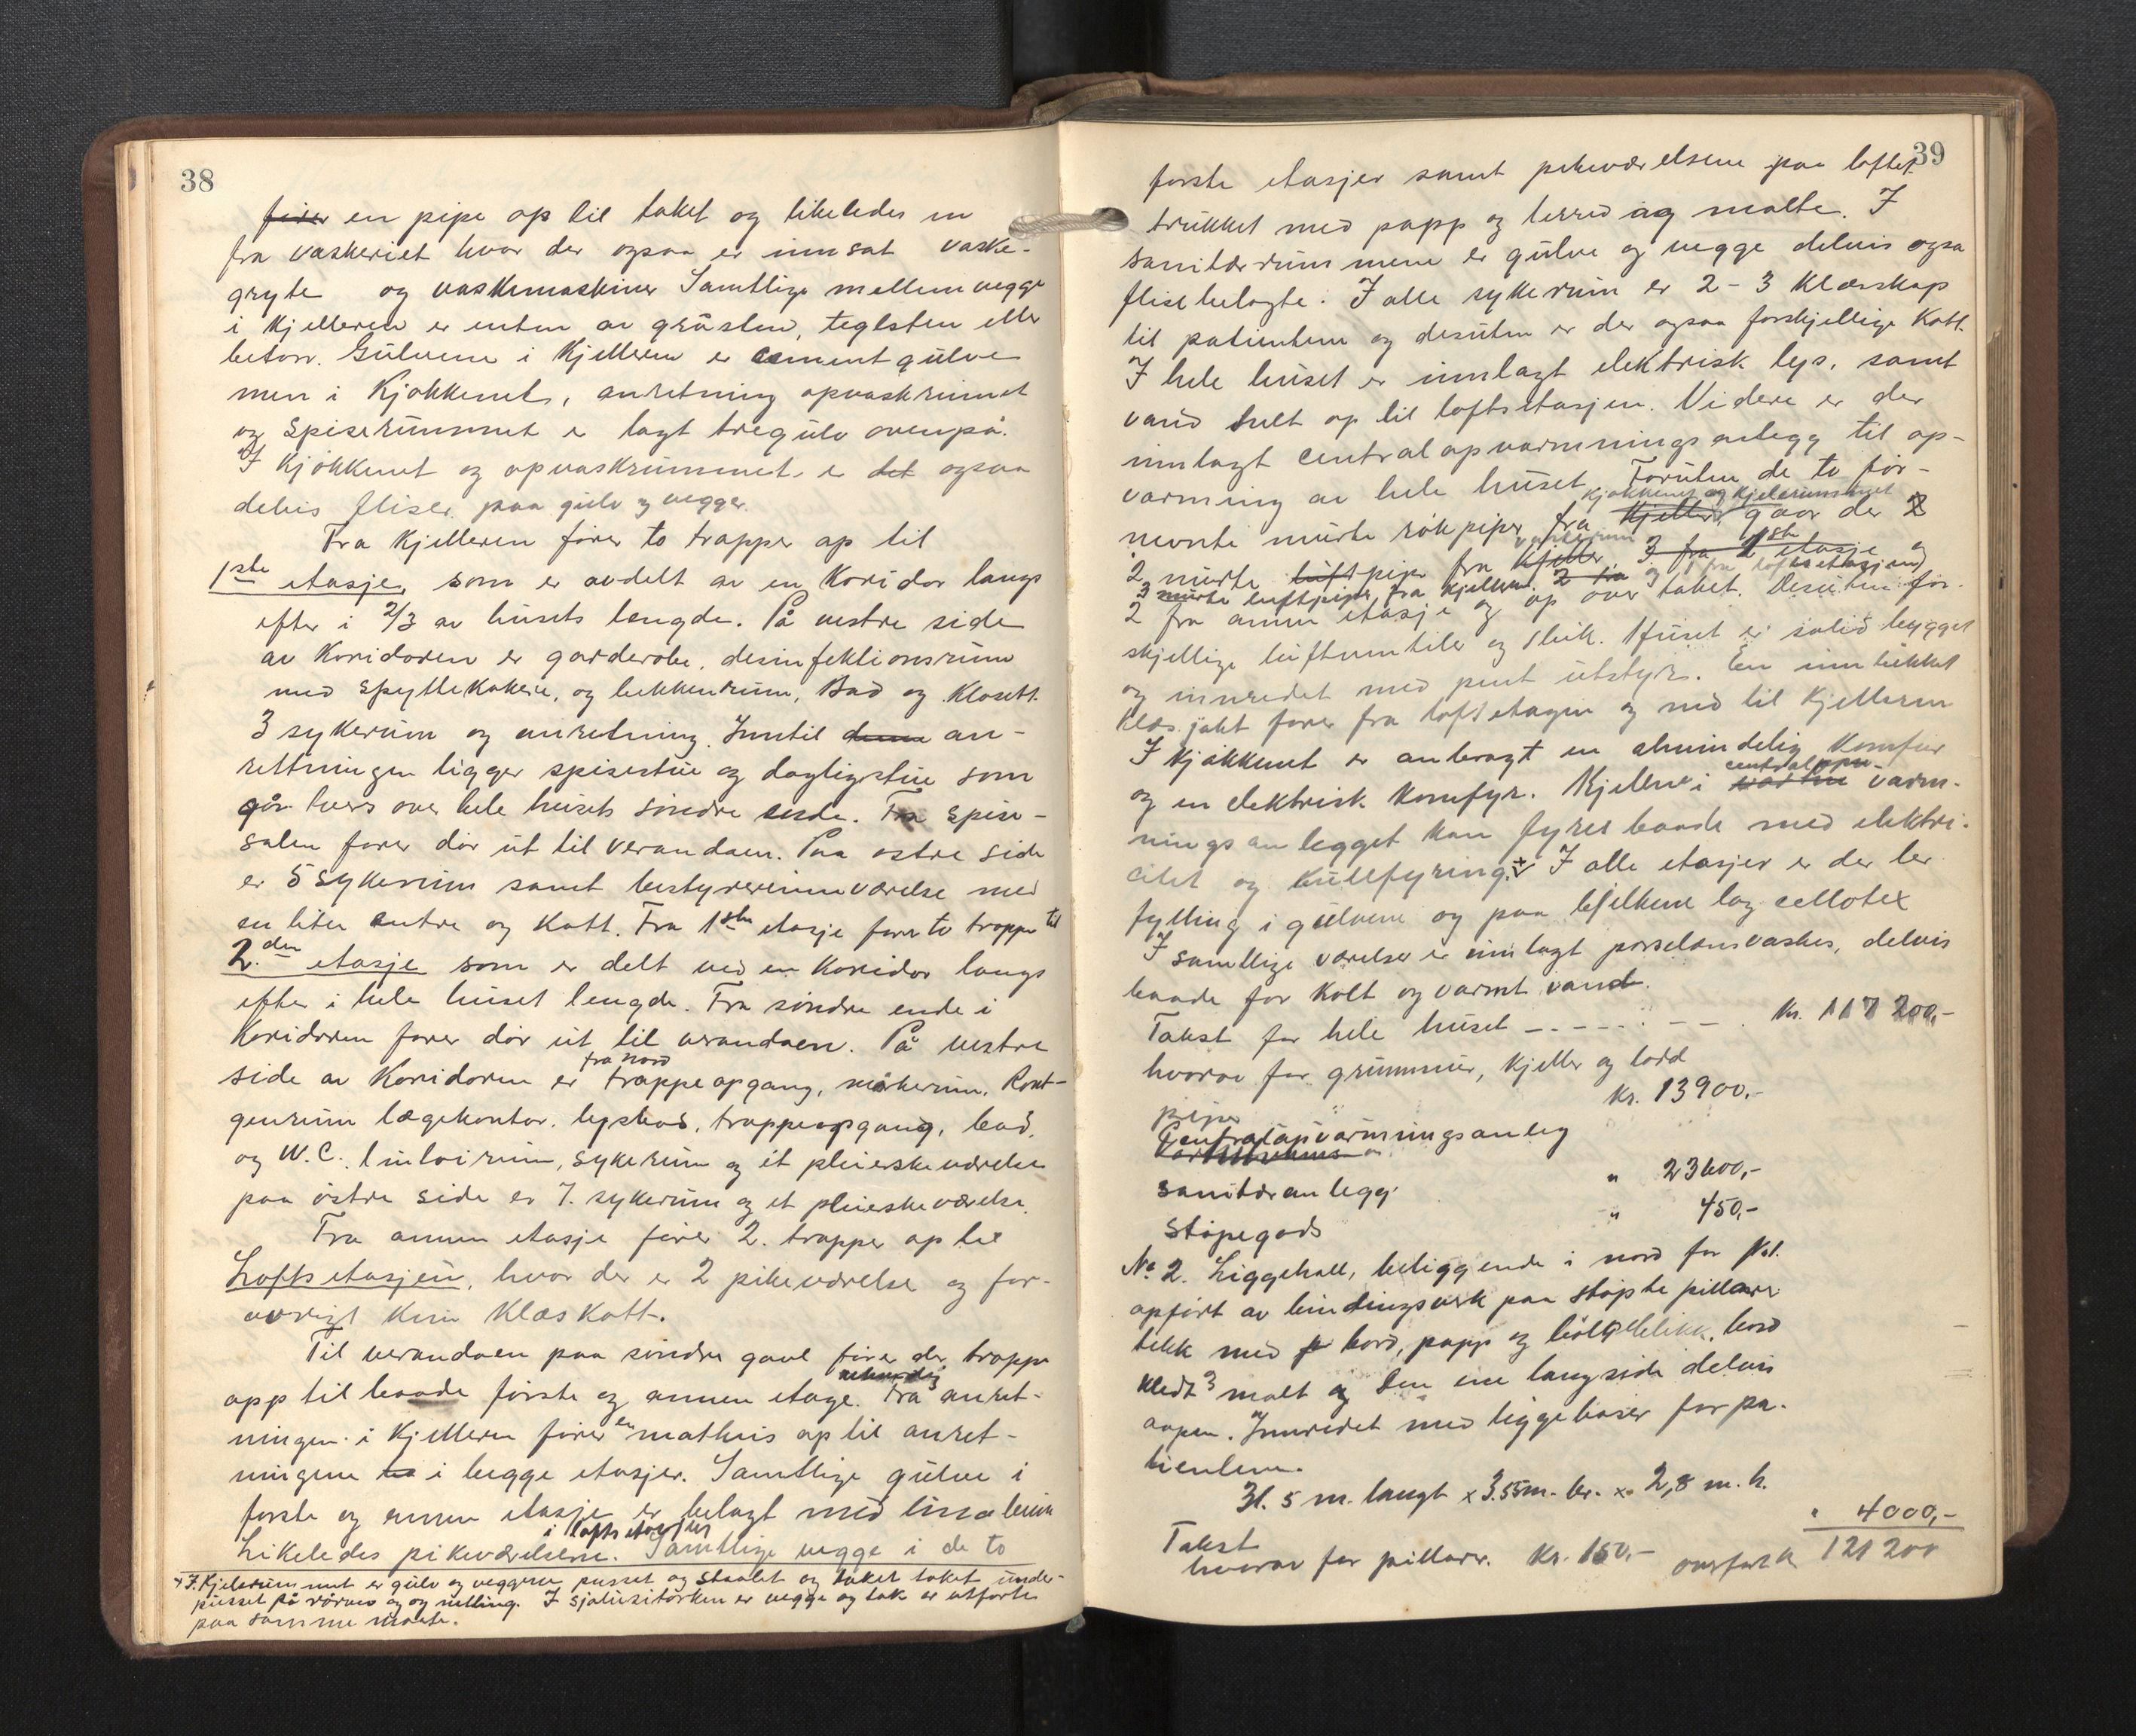 38
fører en pipe op til taket og likeledes en
fra vaskeriet hvor der ogsaa er innsat vaske-
gryte og vaskemaskiner Samtlige mellemvegge
i Kjelleren er enten av gråsten, teglsten eller
betong. Gulvene i Kjelleren er cementgulve
men i Kjøkkenet, anretning opvaskrummet
og Spiserummet er lagt tregulv ovenpå.
I Kjøkkenet og opvaskrummet er det ogsaa
delvis fliser paa gulv og vegger.
Fra Kjelleren fører to trapper op til
1ste etasje, som er avdelt av en Koridor langs
efter i 2/3 av husets længde. På vestre side
av Koridoren er garderobe, desinfektionsrum
med Spyttekokere, og bekkenrum, Bad og Klosett.
3 sykerum og anretning. Inntil denne an-
rettningen ligger spisestue og dagligstue som
går tvers over hele husets søndre ende. Fra spise-
salen fører dør ut til verandaen. Paa østre side
er 5 sykerum samt bestyrerinneværelse med
en liten entre og Kott. Fra 1ste etasje fører to trapper til
2.den etasje som er delt ved en Koridor langs
efter i hele huset lengde. Fra søndre ende i
Koridoren fører dør ut til verandaen. På vestre
side av Koridoren er fra nord trappeopgang, mørkerum, Rønt-
genrum lægekontor, lysbad, trappeopgang, bad,
og W.C., lintøirum, sykerum og et pleierskeværelse
paa østre side er 7. sykerum og et pleierskeværelse.
Fra annen etasje fører 2. trapper op til
Loftsetasjen, hvor der er 2 pikeværelse og for-
øvrigt kun Klæskott.
Til verandaen paa søndre gavl fører der trappe
opp til baade første og annen etage. Fra anret-
ningen i Kjelleren fører en matheis op til anret-
ningene i begge etasjer. Samtlige gulve i
første og annen etasje er belagt med linoleum
Likeledes pikeværelsene i loftsetasjen. Samtlige vegge i de to
+ I Kjelerummet er gulv og veggene pusset og staalet og taket under-
pusset på rørvev og netting. I sjalusitørken er vegge og tak er utført
paa samme maate.
39
første etasjer samt pikeværelsene paa loftet
trukket med papp og lerred og malte. I
sanitærrummene er gulve og vegge delvis ogsa
flisebelagte. I alle sykerum er 2-3 Klæsskap
til patientene og desuten er der ogsaa forskjellige Kott.
I hele huset er innlagt elektrisk lys, samt
vand helt op til loftsetasjen. Videre er der
innlagt centralopvarmningsanlegg til op-
varming av hele huset. Foruten de to før-
nevnte murte røkpiper fra Kjeller kjøkkenet og kjelerummet gaar der 2
2 murte luftpiper fra kjeller vaskerum 3 fra 1ste etasje og
3 murte luftpiper fra kjelleren 2 fra og 1 fra loftsetasjen
2 fra annen etasje og op over taket. Desuten for-
skjellige luftventiler og slik. Huset er solid bygget
og innredet med pent utstyr. En innlukket
Klæssjakt fører fra loftetagen og ned til Kjelleren
I Kjøkkenet er anbragt en almindelig Komfur
og en elektrisk Komfyr. Kjellen i centralopvarm-
ningsanlegget kan fyres baade med elektri-
citet og kullfyring. + I alle etasjer er der ler
fylling i gulvene og paa bjelkene lag cellotex
I samtlige værelser er innlagt porselænsvasker, delvis
baade for Kolt og varmt vand.
Takst for hele huset - - - - - - - Kr. 117 200,-
hvorav for grunnmur, kjeller og lodd
piper Kr. 13900.-
Centralopvarmningsanleg
sanitæranlegg " 23600,-
støpegods " 450,-
No 2. Liggehall, beliggende i nord for No 1.
opført av bindingsverk paa støpte pillarer
tekk med bord, papp og bølgeblikk, bord
kledt malt og den ene langside delvis
aapen. Innredet med liggebaser for pa-
tientene.
31.5 m. langt x 3.55 m. br. x 2,8 m. h.
Takst " 4000,-
hvorav for pillarer. Kr. 150,- overføres 121 200